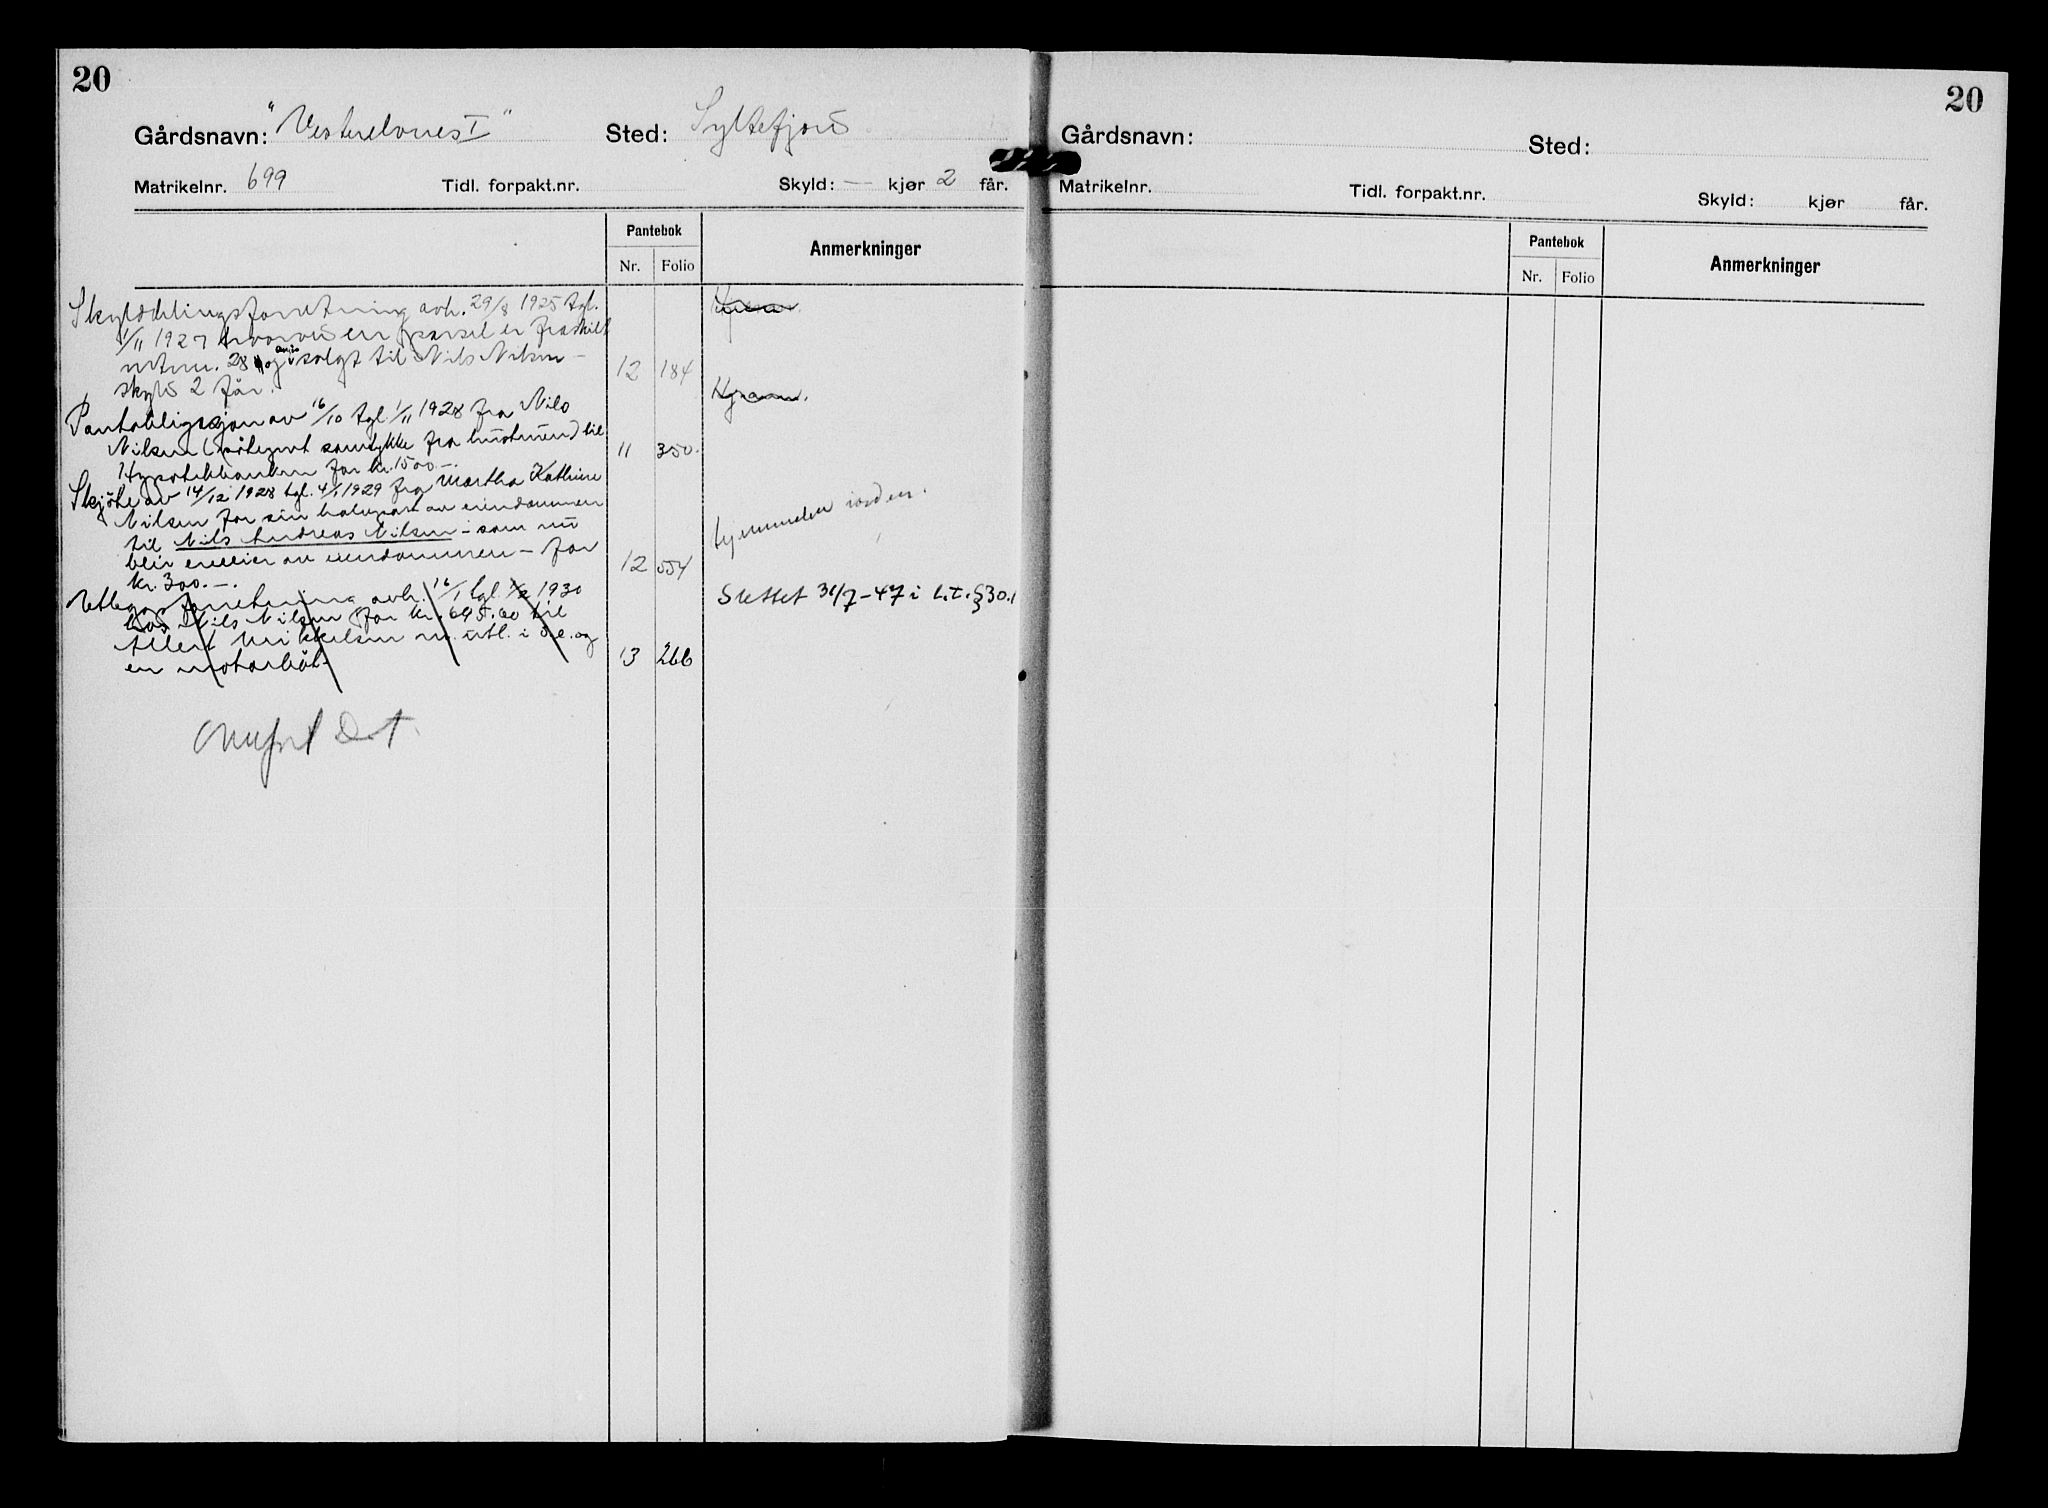 20
Gårdsnavn: "Vestrelvnes I" Sted: Syltefjord
Matrikelnr. 699 Tidl. forpakt.nr. Skyld: — kjør 2 får.
Pantebok Anmerkninger
Nr. Folio
Skylddelingsforretning avh. 29/8 1925 tgl.
1/11 1927 hvorved en parsel er fraskilt
mtrnr. 28 og solgt til Nils Nilsen –
skyld 2 får. 12 184
Pantobligasjon av 16/10 tgl 1/11 1928 fra Nils
Nilsen (påtegnet samtykke fra hustruen) til 11 350.
Hypotekbanken for kr. 1500.–.
Skjøte av 14/12 1928 tgl. 4/1 1929 fra Martha Kathrine
Nilsen for sin halvpart av eiendommen
til Nils Andreas Nilsen – som nu
blir eneeier av eiendommen – for 12 554
kr. 300.–.
Hjemmelen i orden.
Utlegsforretning avh. 16/1 tgl. 1/2 1930
hos Nils Nilsen for kr. 695.60 til
Mikkelsen m. utl. i d.e. og
en motorbåt. 13 266
Slettet 31/7-47 i L.T. §30.1
20
Gårdsnavn: Sted:
Matrikelnr. Tidl. forpakt.nr. Skyld: kjør får.
Pantebok Anmerkninger
Nr. Folio